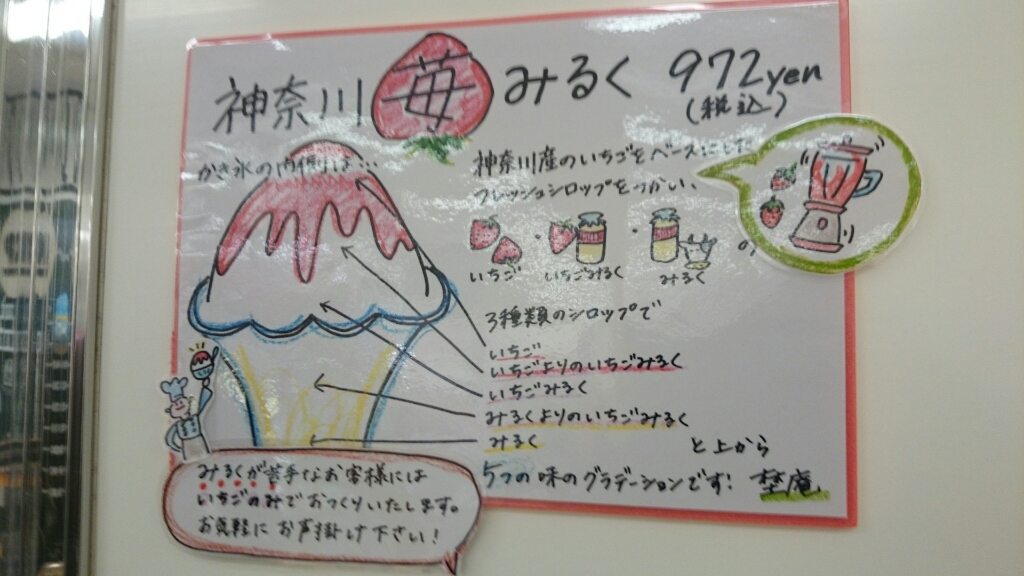 神奈川 苺 みるく 972yen
(税込)
かき氷の内側は…
神奈川産のいちごをベースにした
フレッシュシロップをつかい、
いちご いちごみるく みるく の
3種類のシロップで
いちご
いちごよりのいちごみるく
いちごみるく
みるくよりのいちごみるく
みるく
と上から
5つの味のグラデーションです! 埜庵
みるくが苦手なお客様には
いちごのみでおつくりいたします。
お気軽にお声掛け下さい!